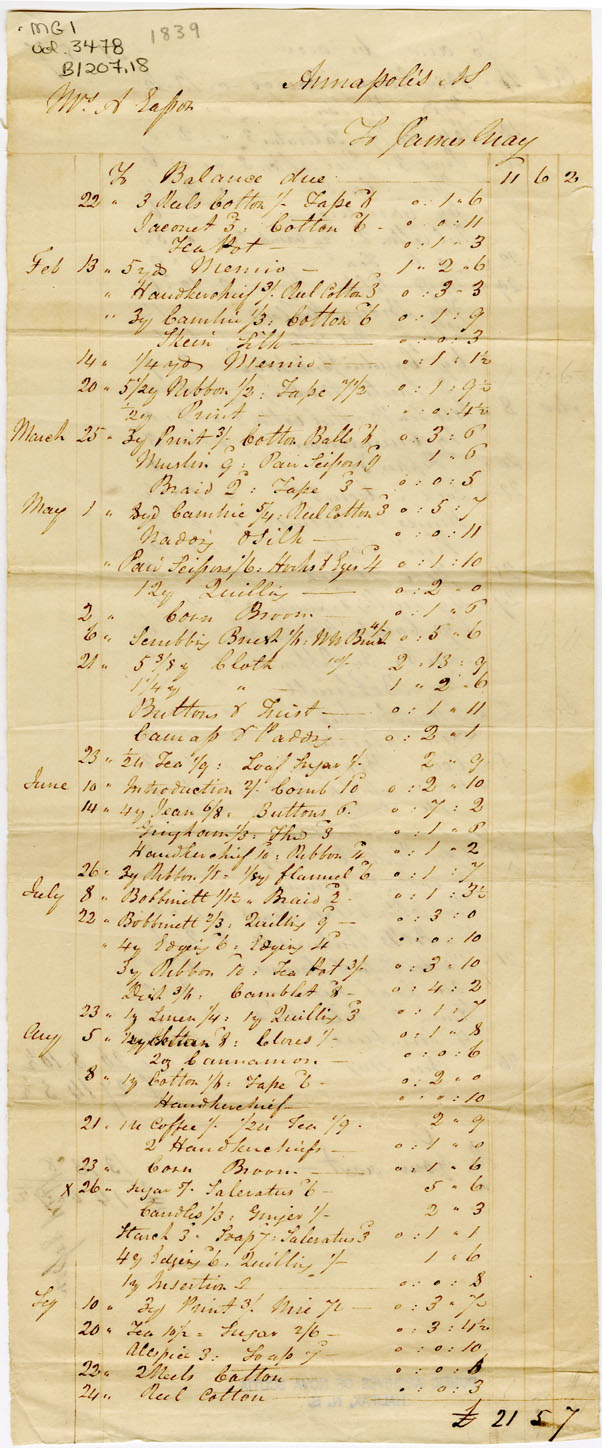 MG1
Vol. 3478
B1207,18
1839
Annapolis NS
Mrs A Easson
To James Gray
To Balance due 11 6 2
22 " 3 Reels Cotton 1/- Tape 6 0 : 1 " 6
Jaconet 3 : Cotton 6 - 0 : 0 : 11
Tea Pot — 0 : 1 " 3
Feb 13 " 5 yds Merino — 1 " 2 " 6
" Handkerchief 3/- Reel Cotton 3 0 : 3 " 3
" 3y Cambric 1/3 : Cotton 6 0 : 1 : 9
Skein Silk — 0 : 0 : 3
14 " 1/4 yd Merino — 0 : 1 : 1½
20 " 5 1/2 y Ribbon 1/2 : Tape 7½ 0 : 1 : 9½
½ y Print — 0 : 0 : 4½
March 25 " 3y Print 3/- Cotton Balls 6 0 : 3 : 6
Muslin 9 : Pair Scissors 9 1 " 6
Braid 2 : Tape 3 - 0 : 0 : 5
May 1 " Cambric 5/4 : Reel Cotton 3 0 : 5 : 7
Silk — 0 : 0 : 11
" Pair Scissors 1/6 : Hooks & Eyes 4 0 : 1 : 10
12y Quilling — 0 : 2 " 0
2 " Corn Broom 0 : 1 " 6
6 " Scrubbing Brush 1/- : WW Brush 4/- 0 : 5 " 6
21 " 5 3/8 y Cloth 10/- 2 : 13 : 9
1 1/4 y " - 1 " 2 " 6
Buttons & Twist — 0 : 1 " 11
Canvass & Padding - 0 : 2 " 1
23 " ½ lb Tea 1/9 : Loaf Sugar 1/- 2 " 9
June 10 " Introduction 2/- Comb 10 0 : 2 " 10
14 " 4y Jean 6/8 : Buttons 6 0 : 7 : 2
Gingham 1/3 : Thd 3 0 : 1 " 6
Handkerchief 10 : Ribbon 4 0 : 1 " 2
26 " 3y Ribbon 1/1 - 1/8y flannel 6 0 : 1 : 7
July 8 " Bobbinett 1/1½ " Braid 2 - 0 : 1 : 3½
22 " Bobbinett 2/3 : Quilling 9 — 0 : 3 : 0
" 4y Edging 6 : Edging 4 0 : 0 : 10
3y Ribbon 10 : Tea Pot 3/- 0 : 3 " 10
3/6 : Camblet 8 - 0 : 4 : 2
23 " 1y Linen 1/4 : 1y Quilling 3 0 : 1 : 7
Aug 5 " 8 : Cloves 1/- 0 : 1 " 8
2oz Cannamon — 0 : 0 : 6
8 " 1y Cotton 1/6 : Tape 6 - 0 : 2 " 0
Handkerchief — 0 : 0 : 10
21 " 1 lb Coffee 1/- 1/2 lb Tea 1/9 - 2 " 9
2 Handkerchiefs — 0 : 1 " 0
23 " Corn Broom — 0 : 1 " 6
X 26 " Sugar 5/- Saleratus 6 - 5 " 6
Candles 1/3 : Ginger 1/- 2 " 3
Starch 3 " Soap 7 : Saleratus 3 0 : 1 " 1
4y Edging 6 : Quilling 1/- 1 " 6
1y Insertion 8 — 0 : 0 : 8
Sep 10 " 3y Print 3/- Wire 7½ — 0 : 3 " 7½
20 " Tea 10½ = Sugar 2/6 — 0 : 3 : 4½
Allspice 3 : Soap 7 — 0 : 0 : 10
22 " 2 Reels Cotton — 0 : 0 : 6
24 " Reel Cotton — 0 : 0 : 3
£ 21 5 7